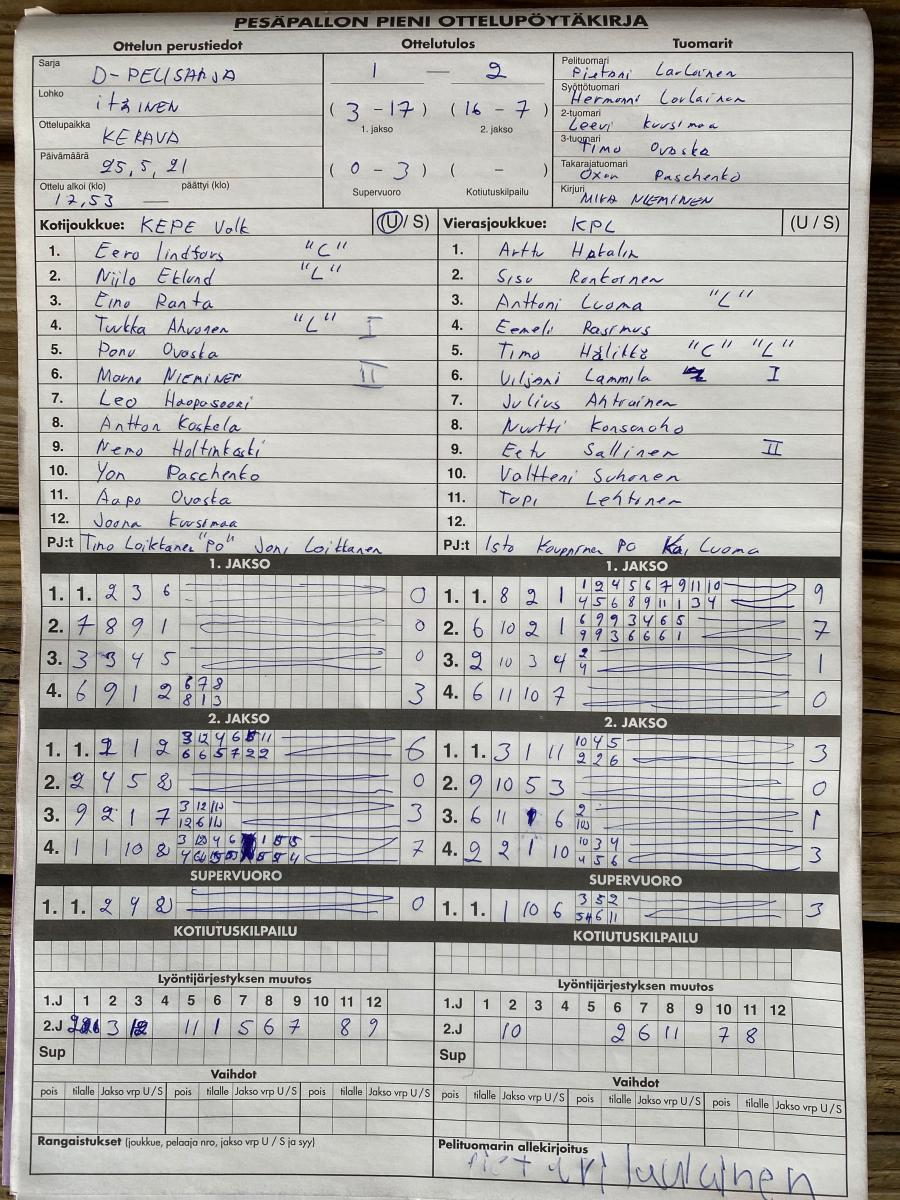 PESÄPALLON PIENI OTTELUPÖYTÄKIRJA
Ottelun perustiedot
Sarja
D-PELISARJA
Lohko
itäINEN
Ottelupaikka
KERAVA
Päivämäärä
25,5,21
Ottelu alkoi (klo) päättyi (klo)
17,53 —
Ottelutulos
1 — 2
(3 - 17) (16 - 7)
1. jakso 2. jakso
(0 - 3) ( - )
Supervuoro Kotiutuskilpailu
Tuomarit
Pelituomari
Syöttötuomari
2-tuomari
Leevi Kuusimaa
3-tuomari
Timo Ovaska
Takarajatuomari
Paschenko
Kirjuri
MIRA NIEMINEN
Kotijoukkue: KEPE Valk (U / S)
1. Eero lindfors "C"
2. Niilo Eklund "L"
3. Eino Ranta
4. Tukka Ahvonen "L" I
5. Panu Ovaska
6. NIEMINEN II
7. Leo Haapasaari
8. Antton Koskela
9. Nemo Holtinkoski
10. Yan Paschenko
11. Aapo Ovaska
12. Joona Kuusimaa
PJ:t Timo Loikkanen "PO" Joni Loikkanen
Vierasjoukkue: KPL (U / S)
1. Arttu Hakalin
2. Sisu Ronkainen
3. Anttoni Luoma "L"
4. Eemeli Rasimus
5. Timo Hälikkä "C" "L"
6. Viljami Lammila I
7. Julius Ahtiainen
8. Nuutti Konsanoho
9. Eetu Sallinen II
10. Valtteri Suhonen
11. Topi Lehtonen
12.
PJ:t Isto Kauppinen PO Kai Luoma
1. JAKSO
1. 1. 2 3 6 0
2. 7 8 9 1 0
3. 3 3 4 5 0
4. 6 9 1 2 6 7 8 3
8 1 3
1. JAKSO
1. 1. 8 2 1 1 2 4 5 6 7 9 11 10 9
4 5 6 8 9 11 1 3 4
2. 6 10 2 1 6 9 9 3 4 6 5 7
9 9 3 6 6 6 1
3. 2 10 3 4 2 1
4
4. 6 11 10 7 0
2. JAKSO
1. 1. 2 1 2 3 12 4 6 8 5 11 6
6 6 5 7 2 2
2. 2 4 5 8 0
3. 9 2 1 7 3 12 10 3
12 6 10
4. 1 1 10 8 7
2. JAKSO
1. 1. 3 1 11 10 4 5 3
2 2 6
2. 9 10 5 3 0
3. 6 11 1 6 2 1
10
4. 2 2 1 10 10 3 4 3
4 5 6
SUPERVUORO
1. 1. 2 4 8 0
SUPERVUORO
1. 1. 1 10 6 3 5 2 3
5 4 6 11
KOTIUTUSKILPAILU
KOTIUTUSKILPAILU
Lyöntijärjestyksen muutos
1.J 1 2 3 4 5 6 7 8 9 10 11 12
2.J 3 12 11 1 5 6 7 8 9
Sup
Lyöntijärjestyksen muutos
1.J 1 2 3 4 5 6 7 8 9 10 11 12
2.J 10 2 6 11 7 8
Sup
Vaihdot
pois tilalle Jakso vrp U / S pois tilalle Jakso vrp U / S pois tilalle Jakso vrp U / S
Vaihdot
pois tilalle Jakso vrp U / S pois tilalle Jakso vrp U / S pois tilalle Jakso vrp U / S
Rangaistukset (joukkue, pelaaja nro, jakso vrp U / S ja syy)
Pelituomarin allekirjoitus